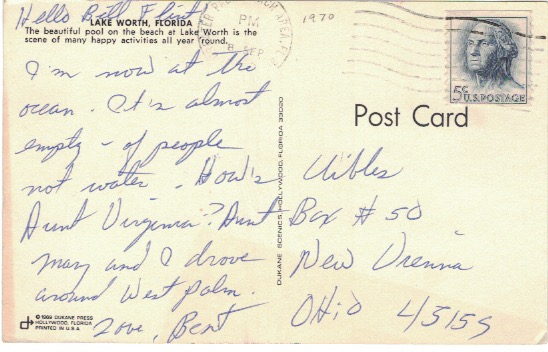 Hello Bill Flint!
LAKE WORTH, FLORIDA
The beautiful pool on the beach at Lake Worth is the
scene of many happy activities all year 'round.
I'm now at the
ocean. It's almost
empty - of people
not water. How's
Aunt Virginia? Aunt
Mary and I drove
around West Palm.
Love, Bent
© 1969 DUKANE PRESS
HOLLYWOOD, FLORIDA
PRINTED IN U.S.A
DUKANE SCENICS, HOLLYWOOD, FLORIDA 33020
PM
8 SEP
1970
5¢ U.S. POSTAGE
Post Card
Uibles
Box # 50
New Vienna
OHio 45159